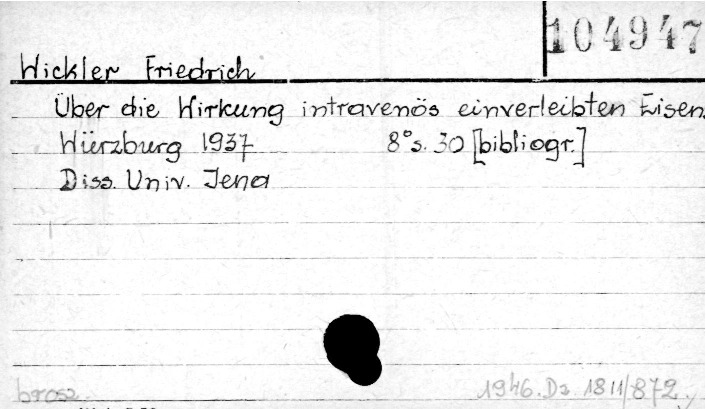 104947
Wickler Friedrich
Über die Wirkung intravenös einverleibten Eisens
Würzburg 1937 8° s. 30 [bibliogr.]
Diss. Univ. Jena
brosz. 1946.Dz. 1811/872.